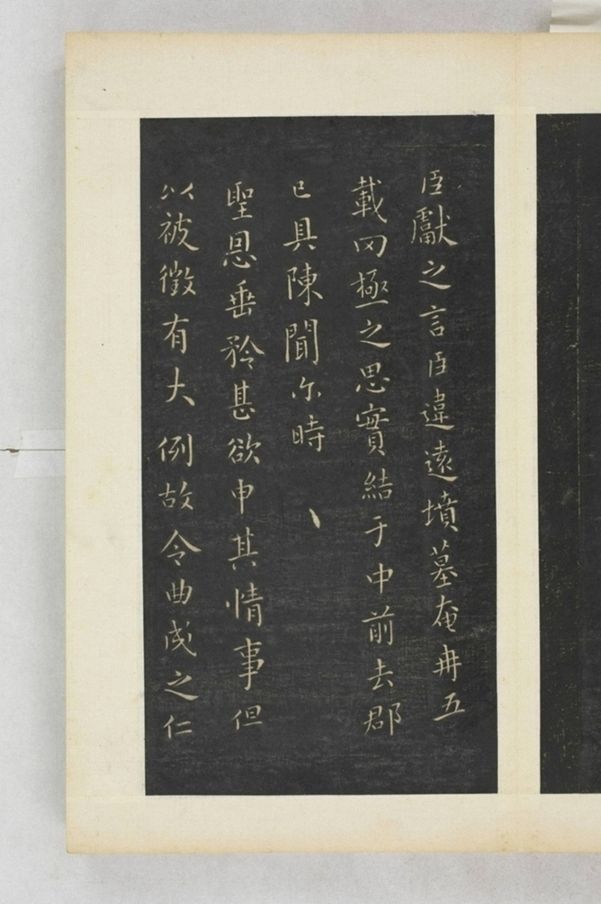 臣獻之言臣違遠墳墓奄冉五
載罔極之思實結于中前去郡
已具陳聞尓時
聖恩垂矜甚欲申其情事但
以被徵有大例故令曲成之仁